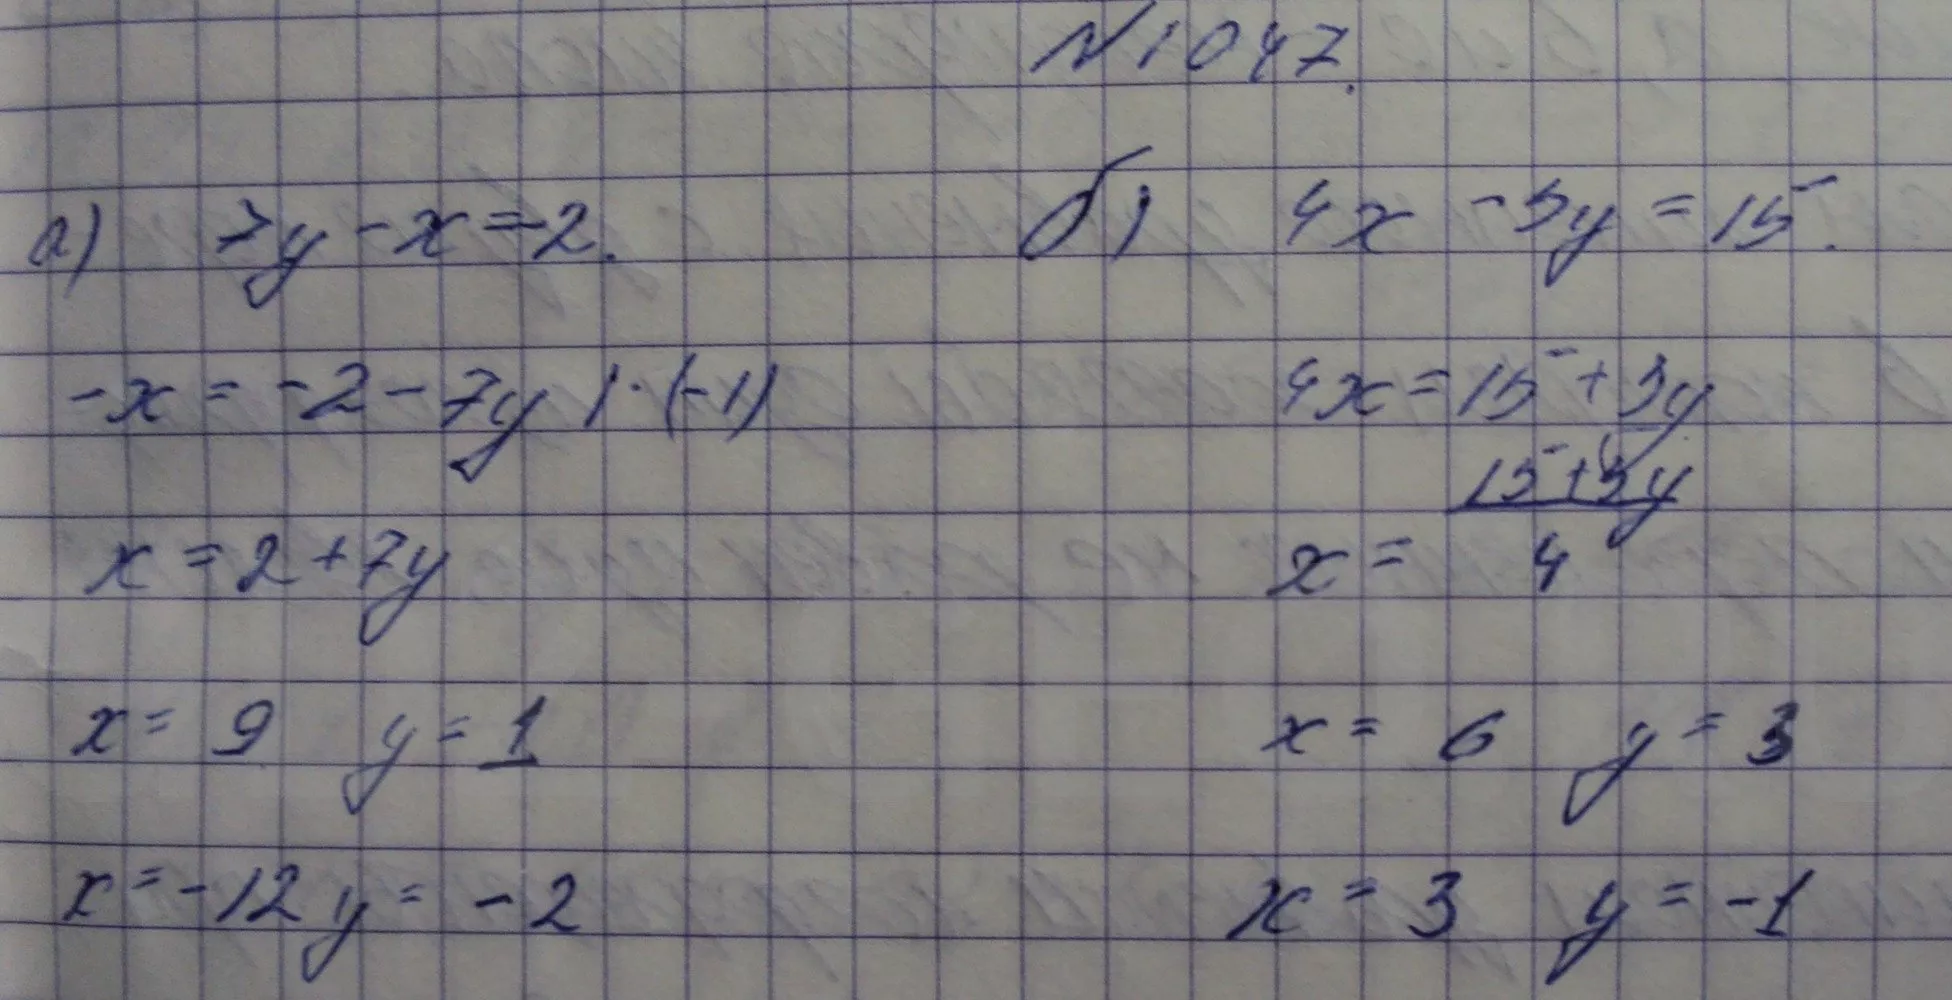 №1047.
а) 7y - x = -2.
-x = -2 - 7y | · (-1)
x = 2 + 7y
x = 9 y = 1
x = -12 y = -2
б) 4x - 3y = 15.
4x = 15 + 3y
x = (15 + 3y)/4
x = 6 y = 3
x = 3 y = -1